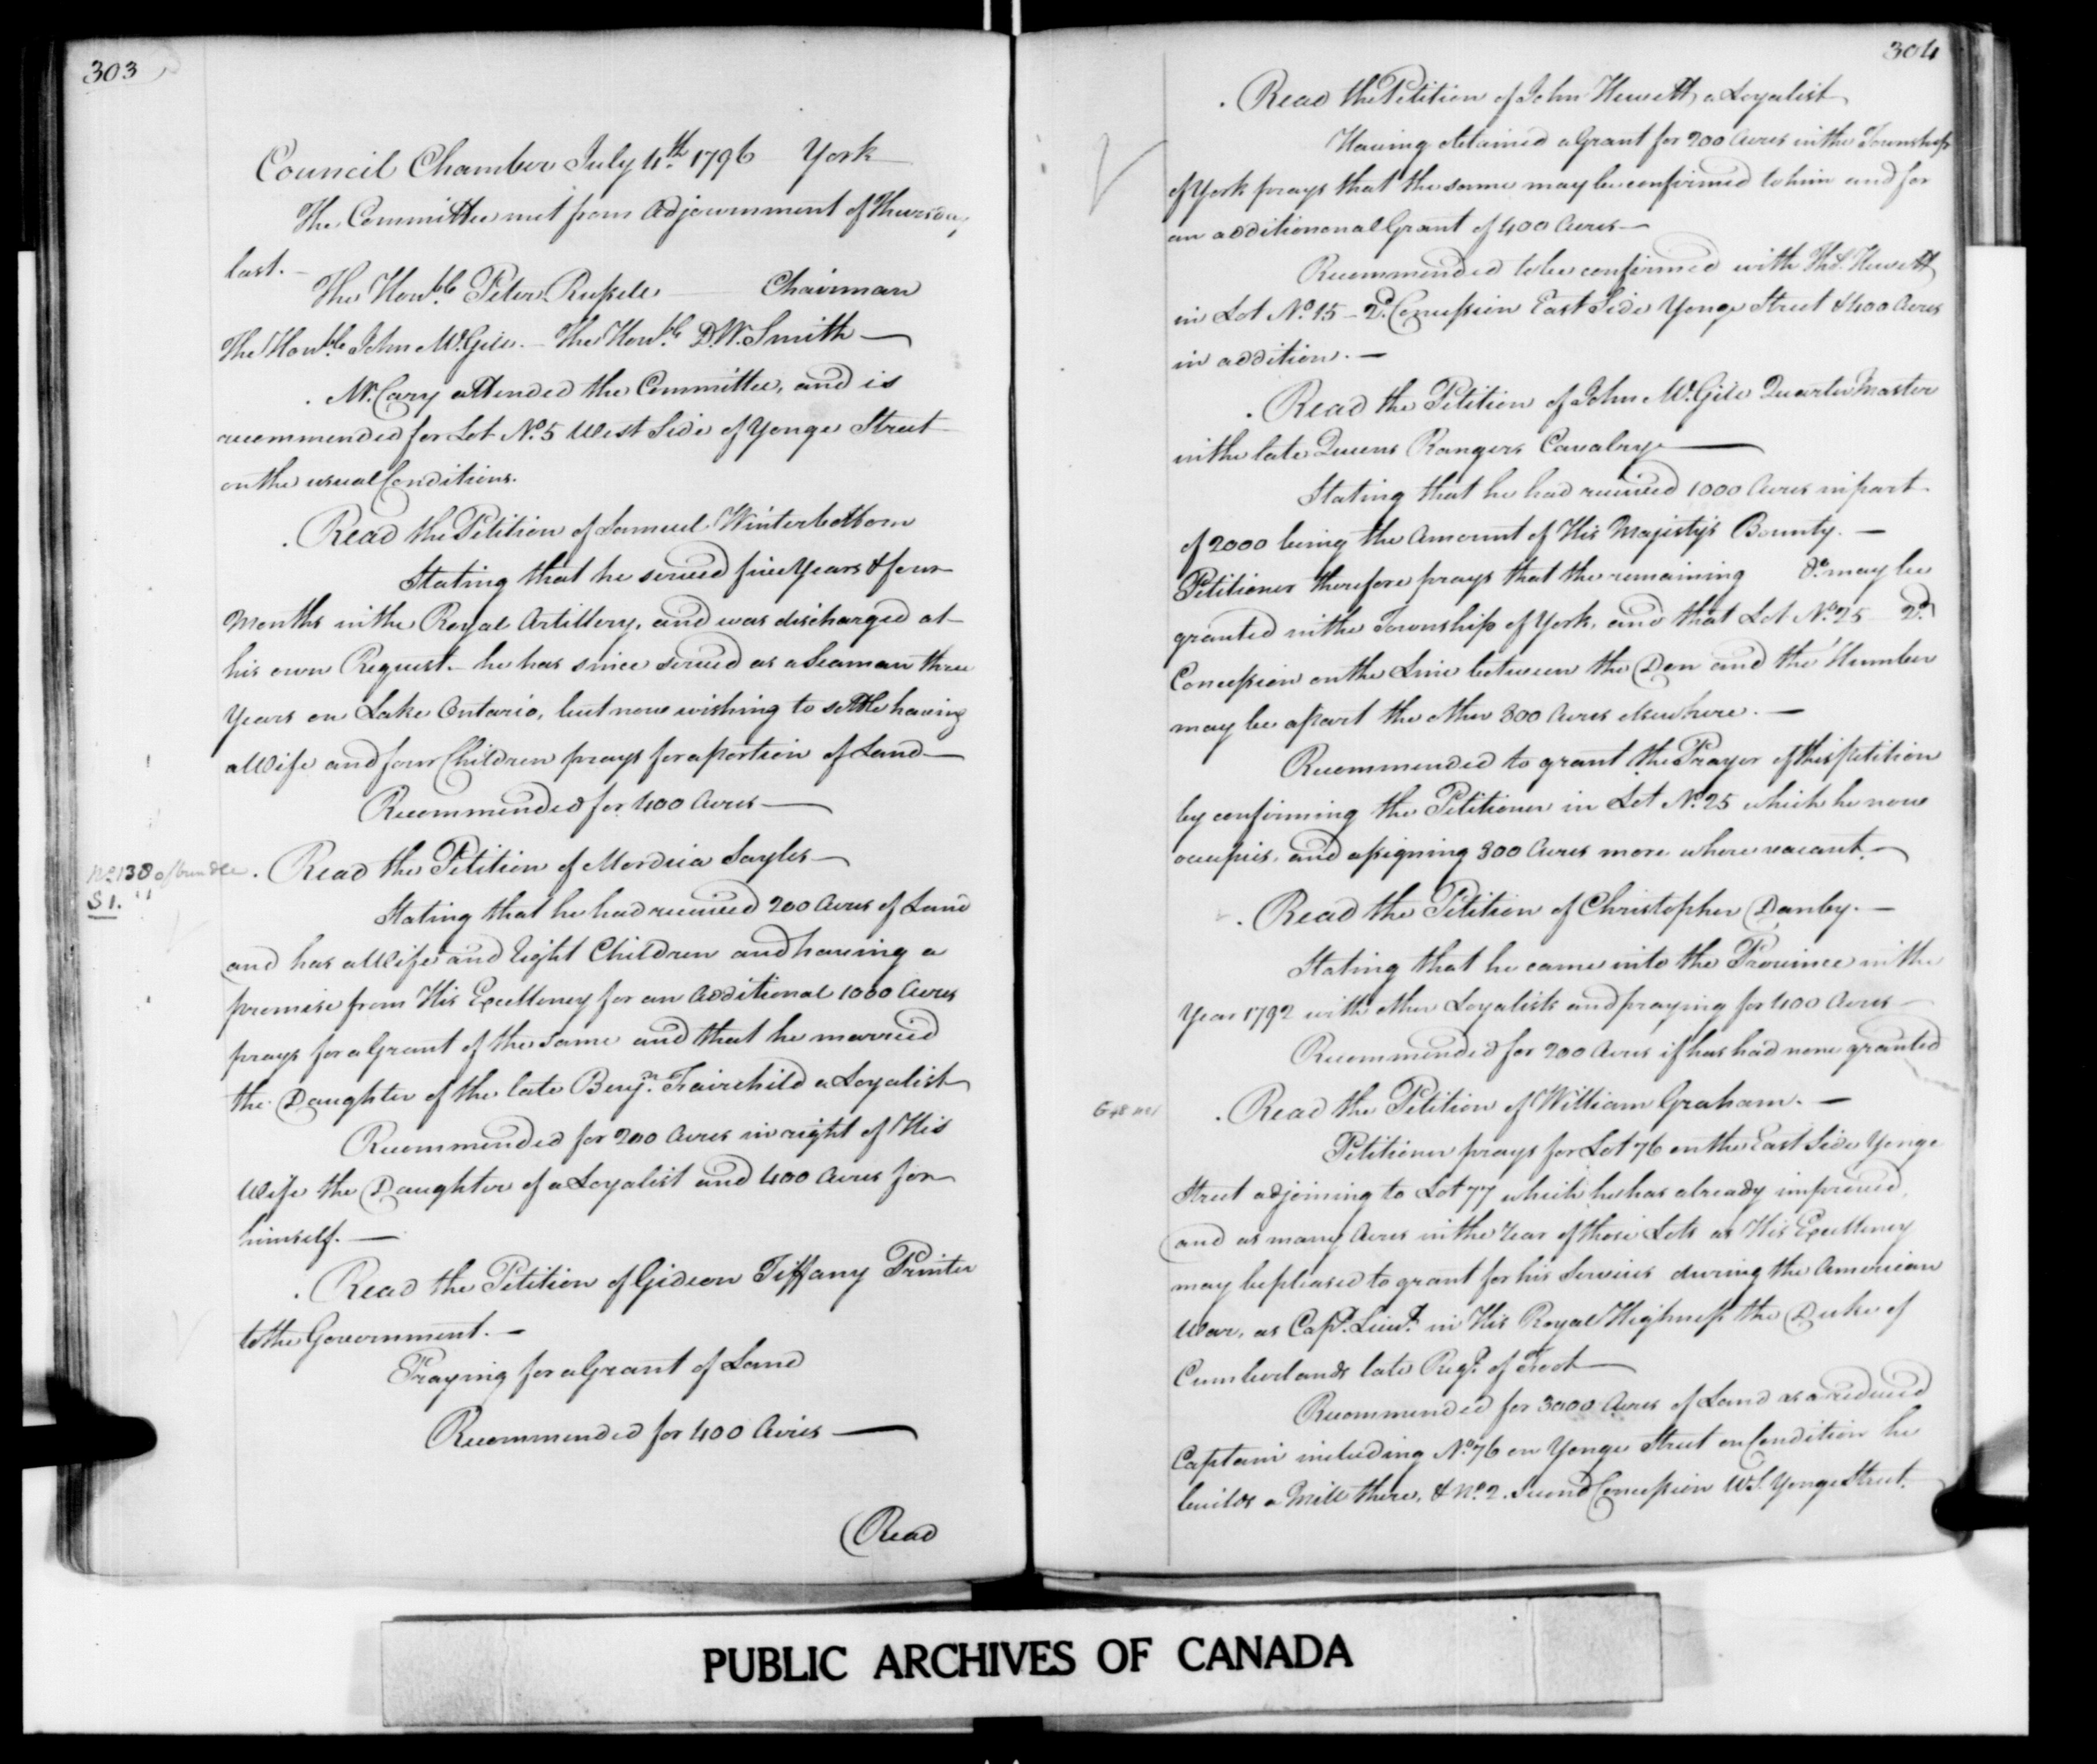 303
Council Chamber July 4th 1796 York
The Committee met from Adjournment of Thursday
last.—
The Honble Peter Russell — Chairman
The Honble John McGill.— The Honble D.W. Smith—
. Mr. Cary attended the Committee, and is
recommended for Lot No. 5 West Side of Yonge Street
on the usual Conditions.
. Read the Petition of Samuel Winterbottom
Stating that he served five Years & four
Months in the Royal Artillery, and was discharged at
his own Request— he has since served as a Seaman three
Years on Lake Ontario, but now wishing to settle having
a Wife and four Children prays for a portion of Land—
Recommended for 400 Acres—
No. 138 of bundle
S 1. "
. Read the Petition of Mordica Sayles—
Stating that he had received 200 Acres of Land
and has a Wife and Eight Children and having a
promise from His Excellency for an Additional 1000 Acres
prays for a Grant of the Same and that he married
the Daughter of the late Benjn. Fairchild a Loyalist
Recommended for 200 Acres in right of His
Wife the Daughter of a Loyalist and 400 Acres for
himself.—
. Read the Petition of Gideon Tiffany Printer
to the Government.—
Praying for a Grant of Land
Recommended for 400 Acres—
Read
304
. Read the Petition of John Hewett, a Loyalist
Having obtained a Grant for 200 Acres in the Township
of York prays that the same may be confirmed to him and for
an additiononal Grant of 400 Acres—
Recommended to be confirmed with Ths. Hewett
in Lot No. 15 – 2d. Concession East Side Yonge Street & 400 Acres
in addition.—
. Read the Petition of John McGill Quarter Master
in the late Queens Rangers Cavalry—
Stating that he had received 1000 Acres in part
of 2000 being the Amount of His Majesty's Bounty.—
Petitioner therefore prays that the remaining do. may be
granted in the Township of York, and that Lot No. 25 2d.
Concession on the Line between the Don and the Humber
may be apart the other 800 Acres elsewhere.—
Recommended to grant the Prayer of this petition
by confirming the Petitioner in Lot No. 25 which he now
occupies, and assigning 800 Acres more where vacant.—
. Read the Petition of Christopher Danby.—
Stating that he came into the Province in the
Year 1792 with other Loyalists and praying for 400 Acres—
Recommended for 200 Acres if has had none granted
. Read the Petition of William Graham.—
Petitioner prays for Lot 76 on the East Side Yonge
Street adjoining to Lot 77 which he has already improved,
and as many Acres in the rear of those Lots as His Excellency
may be pleased to grant for his Services during the American
War, as Capt. Lieut. in His Royal Highness the Duke of
Cumberlands late Regt. of Foot—
Recommended for 3000 Acres of Land as a reduced
Captain including No. 76 on Yonge Street on Condition he
builds a Mill there, & No. 2. Second Concession W.S. Yonge Street.
PUBLIC ARCHIVES OF CANADA